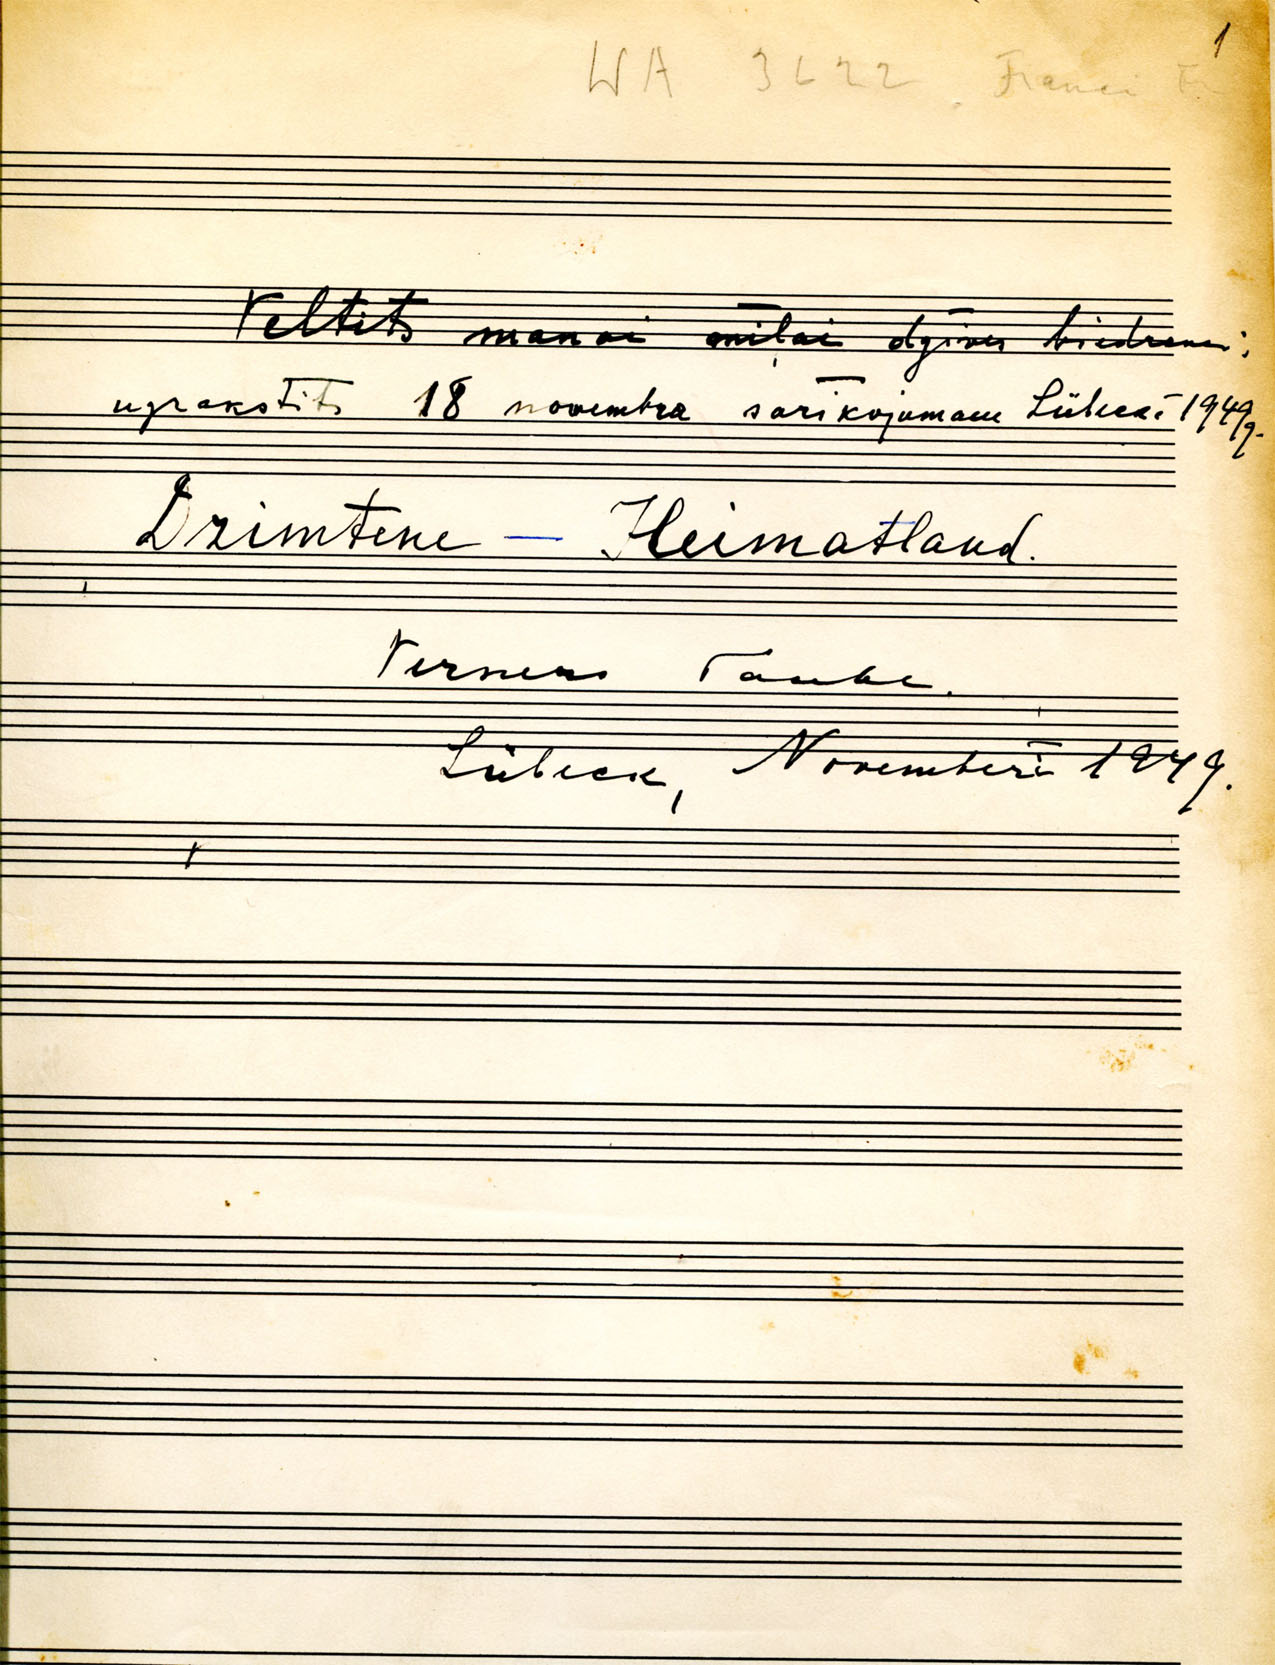 1
WA 3622
Veltīts manai mīļai dzīves biedrenei;
uzrakstīts 18 novembra sarīkojumam Lübeckā 1949g.
Dzimtene — Heimatland.
Verners Taube.
Lübeck, Novemberī 1949.